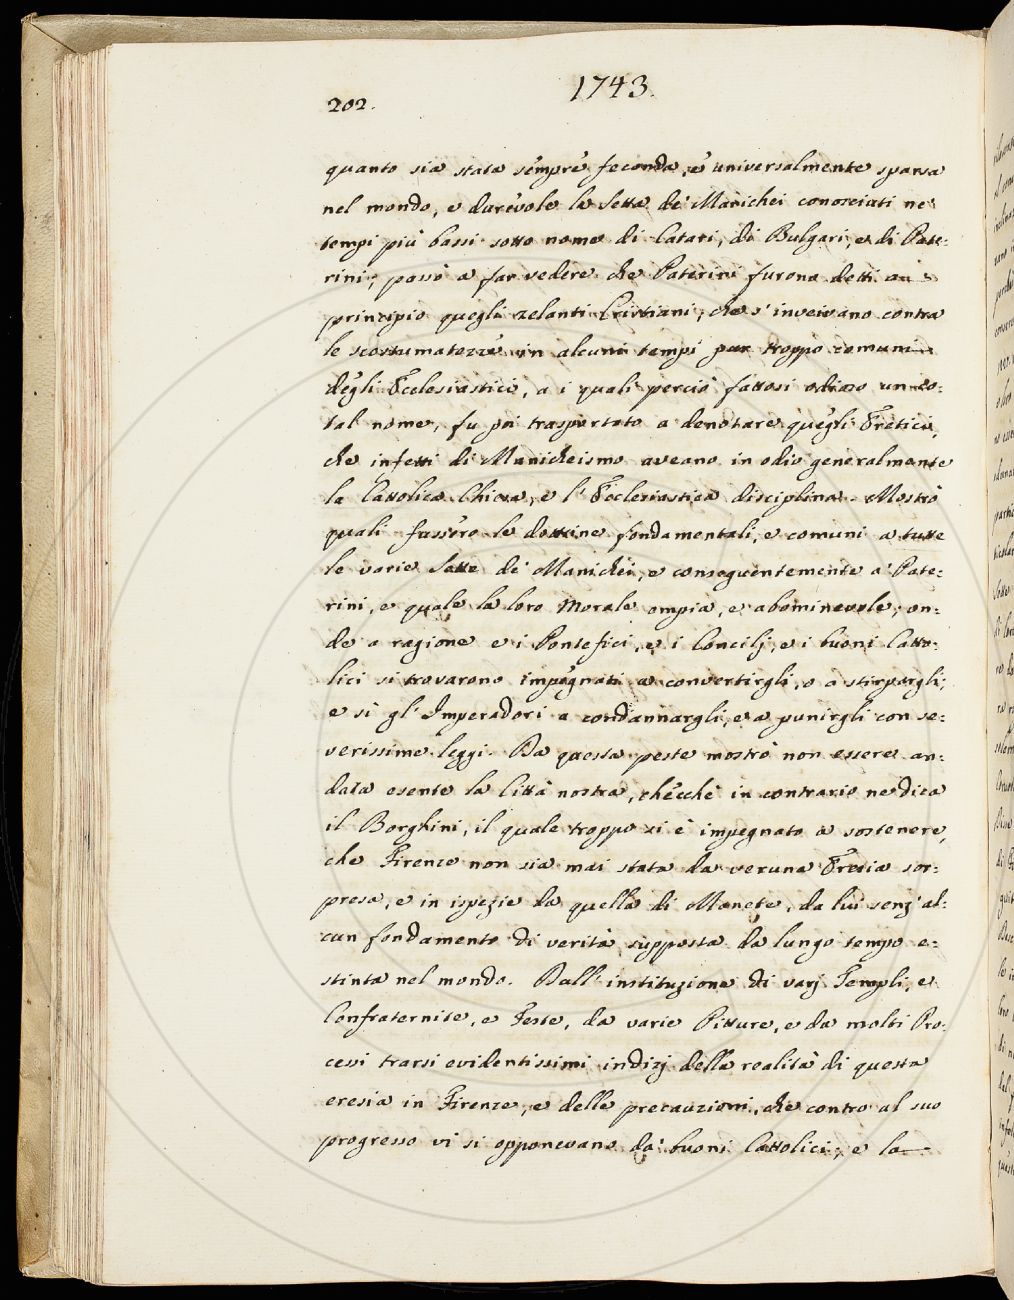 1743.
202.
quanto sia stata sempre feconda, e universalmente sparsa
nel mondo, e durevole la Setta de' Manichei conosciuti ne'
tempi più bassi sotto nome di Catari, di Bulgari, e di Pate:
rini; passò a far vedere che Paterini furono detti a
principio quegli zelanti Cristiani, che s'inveivano contra
le scostumatezze in alcuni tempi pur troppo comuni
degli Ecclesiastici, a i quali perciò fattosi odioso un co:
tal nome, fu poi trasportato a denotare quegli Eretici,
che infetti di Manicheismo aveano in odio generalmente
la Cattolica Chiesa, e l'Ecclesiastica disciplina. Mostrò
quali fussero le dottrine fondamentali, e comuni a tutte
le varie Sette de' Manichei, e conseguentemente a' Pate:
rini, e quale la loro Morale empia, e abominevole; on:
de a ragione e i Pontefici, e i Concilj, e i buoni Catto:
lici si trovarono impegnati a convertirgli, o a stirpargli;
e sì gl'Imperadori a condannargli, e a punirgli con se:
verissime leggi. Da questa peste mostrò non essere an:
data esente la Città nostra, checchè in contrario ne dica
il Borghini, il quale troppo si è impegnato a sostenere,
che Firenze non sia mai stata da veruna Eresia sor:
presa, e in ispezie da quella di Manete, da lui senz'al:
cun fondamento di verità supposta da lungo tempo e:
stinta nel mondo. Dall'instituzione di varj Templi, e
Confraternite, e Feste, da varie Pitture, e da molti Pro:
cessi trarsi evidentissimi indizj della realità di questa
eresia in Firenze, e delle precauzioni, che contro al suo
progresso vi si opponevano da' buoni Cattolici; e la